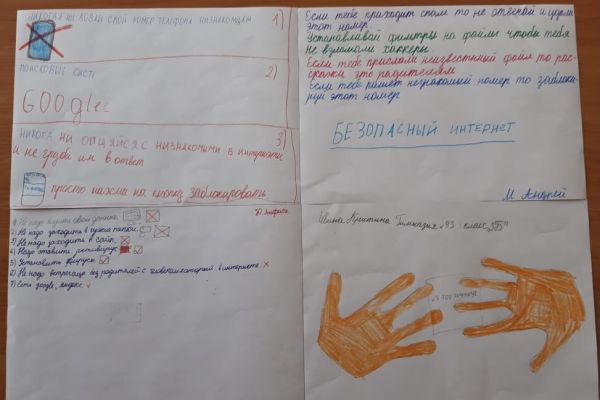 НИКОГДА СВОЙ НОМЕР ТЕЛЕФОНА НИЗНАКОМЦАМ
1)
ПОИСКОВЫЕ СИСТ
2)
GOOgle
НИКОГА НИ ОПЩЯЙСЯ С НИЗНАКОМИМИ В ИНТЕРНЕТИ
3)
И НЕ ГРУБИ ИМ В ОТВЕТ
ПРОСТО НАЖМИ НА КНОПКУ ЗАБЛОКИРОВАТЬ
Если тебе приходит спам то не отвечай и удали
этот номер
Устанавливай фильтры на файлы чтобы тебя
не взломали хаккеры
Если тебе прислали неизвестный файл то рас-
скажи это родителям
Если тебе пишет незнакомый номер то заблоки-
руй этот номер
БЕЗОПАСНЫЙ ИНТЕРНЕТ
М Андрей
1) Не надо свои данные.
2) Не надо заходить в чужие папки.
3) Не надо заходить в сайт.
4) Надо ставити антивирус
5) Установить
6) Не надо встречаца без родителей с в интернете. x
7) Есть google, яндекс ✓
Кристина Гимназия №93 класс "5Б"